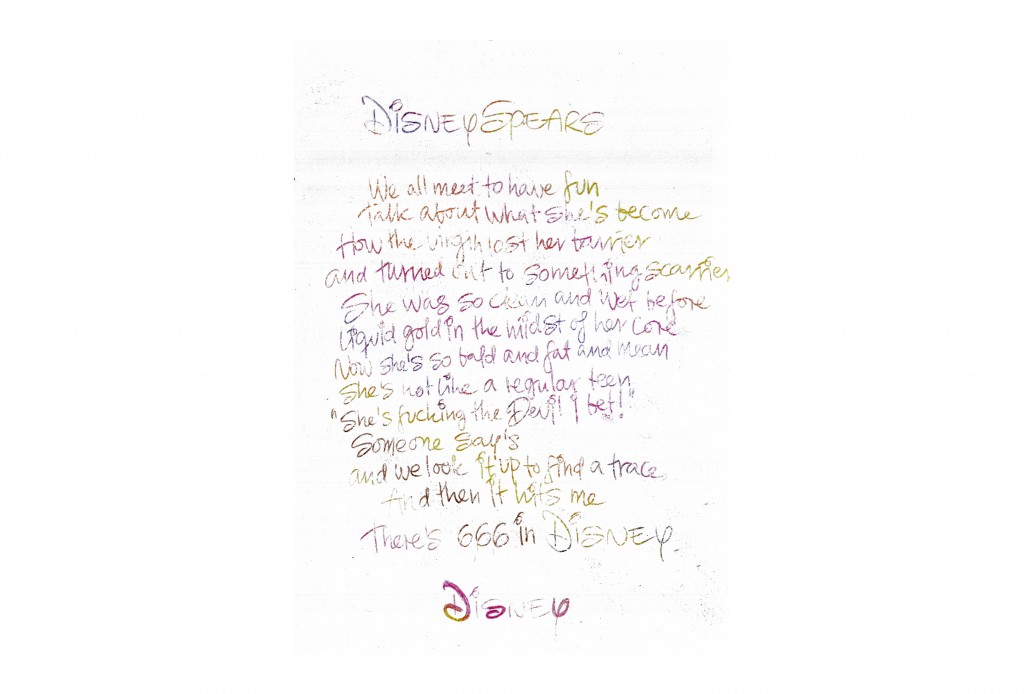 DISNEY SPEARS
We all meet to have fun
Talk about what she's become
How the virgin lost her barrier
and turned out to something scarrier
She was so clean and wet before
Liquid gold in the midst of her core
Now she's so bald and fat and mean
She's not like a regular teen
"She's fucking the Devil i bet!"
Someone say's
and we look it up to find a trace
And then it hits me
There's 666 in DISNEY.
DISNEY